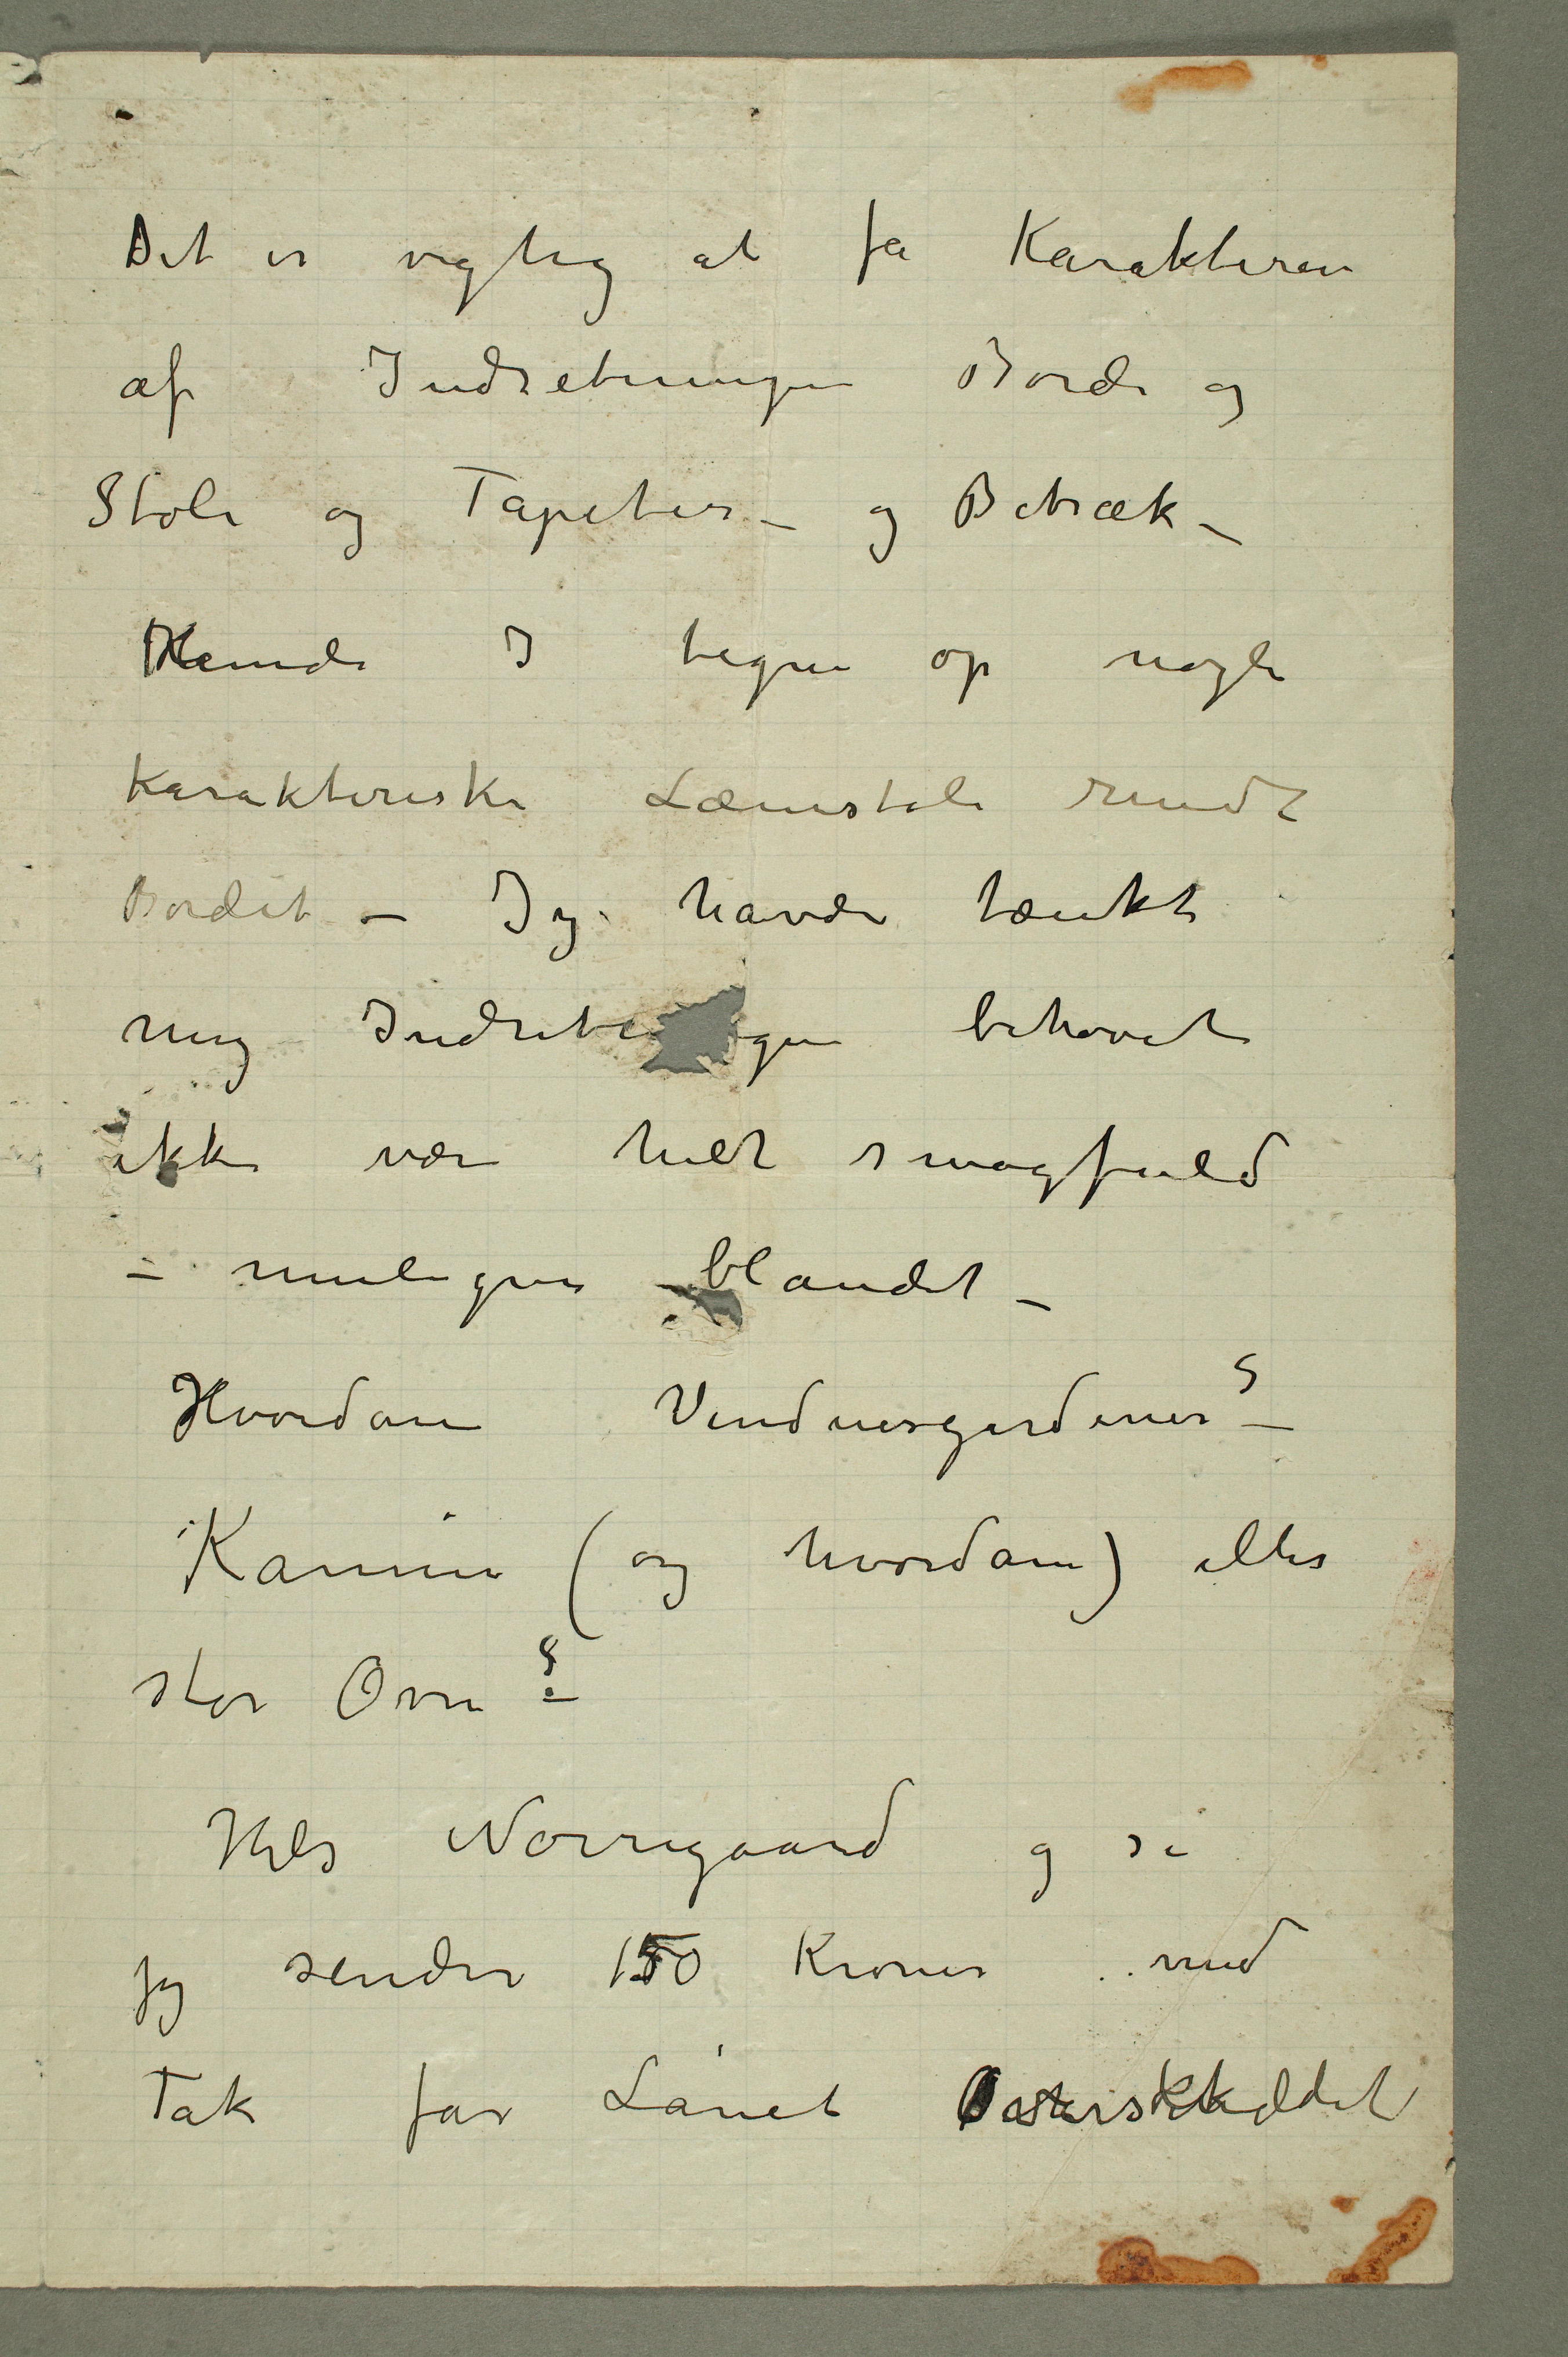 Det er vigtig at få Karakteren
af Indretningen Borde og
Stole og Tapeter – og Betræk –
Kunde I tegne op nogle
karakteriske Lænstole rundt
Bordet – Jeg havde tænkt
mig Indretningen behøvet
ikke være helt smagfuld
– muligens blandet –
Hvordan Vinduesgardiner? –
Kamin (og hvordan) eller
stor Ovn? –
Hils Nørregaard og si
jeg sender 150 Kroner med
Tak for Lånet